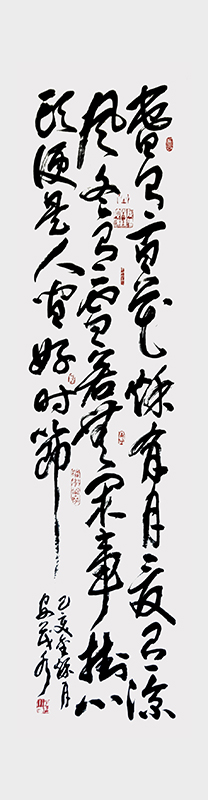 春有百花秋有月夏有涼
風冬有雪若無閑事掛心
頭便是人間好时節
己亥金秋月